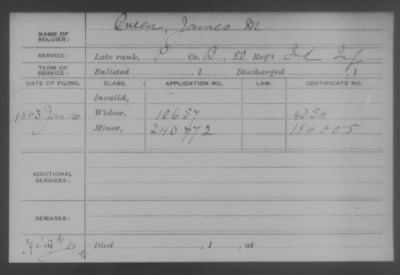 NAME OF SOLDIER: Queen, James M.
SERVICE: Late rank, P Co. B, 80 Reg't Ind Inf
TERM OF SERVICE: Enlisted , 1 Discharged , 1
DATE OF FILING. CLASS. APPLICATION NO. LAW. CERTIFICATE NO.
Invalid,
1863 Jan 16 Widow, 10657 4354
Minor, 240772 184005
ADDITIONAL SERVICES:
REMARKS:
Died , 1 , at